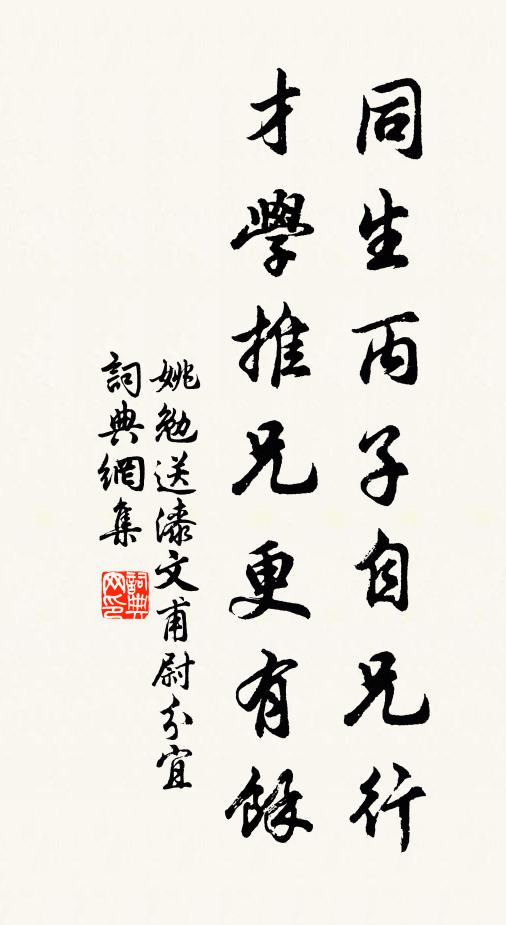 同生丙子自兄行
才學推兄更有餘
姚勉送漆文甫尉分宜
詞典網集
詞典网印